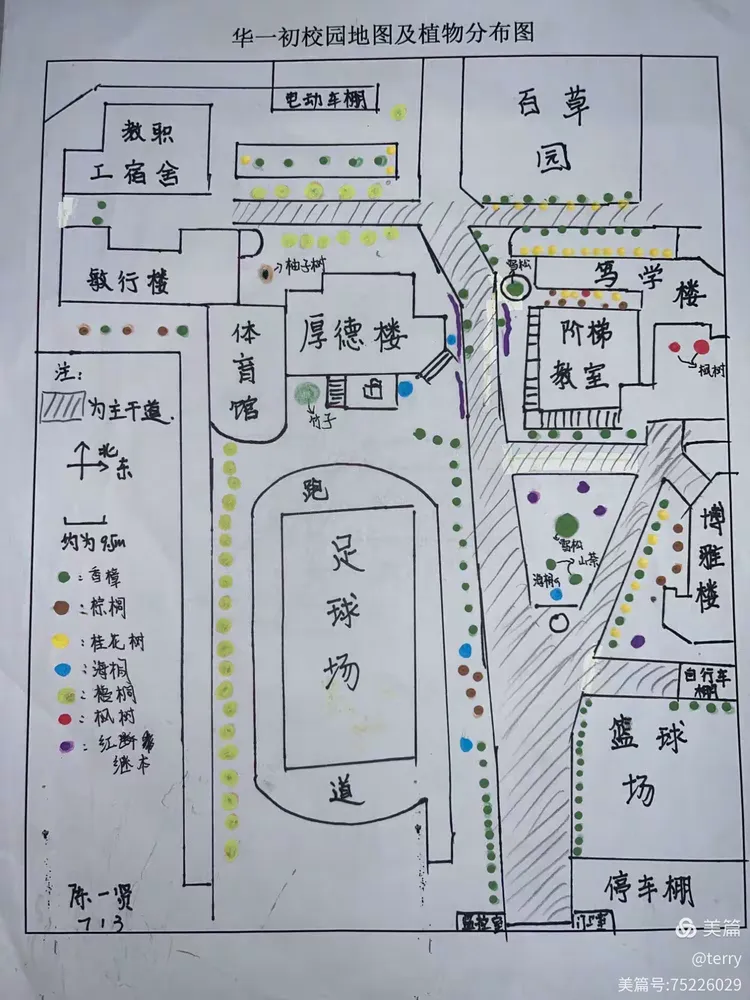 华一初校园地图及植物分布图
电动车棚
百草
园
教职
工宿舍
敏行楼
柚子树
雪松
笃学楼
体
育
馆
厚德楼
阶梯
教室
枫树
竹子
注:
为主干道.
北
东
约为95m
:香樟
:棕榈
:桂花树
:海桐
:梧桐
:枫树
:红
继木
跑
足
球
场
道
雪松
山茶
海桐
博
雅
楼
自行车
棚
篮球
场
停车棚
监控室
门卫室
陈一贤
713
美篇
@terry
美篇号:75226029